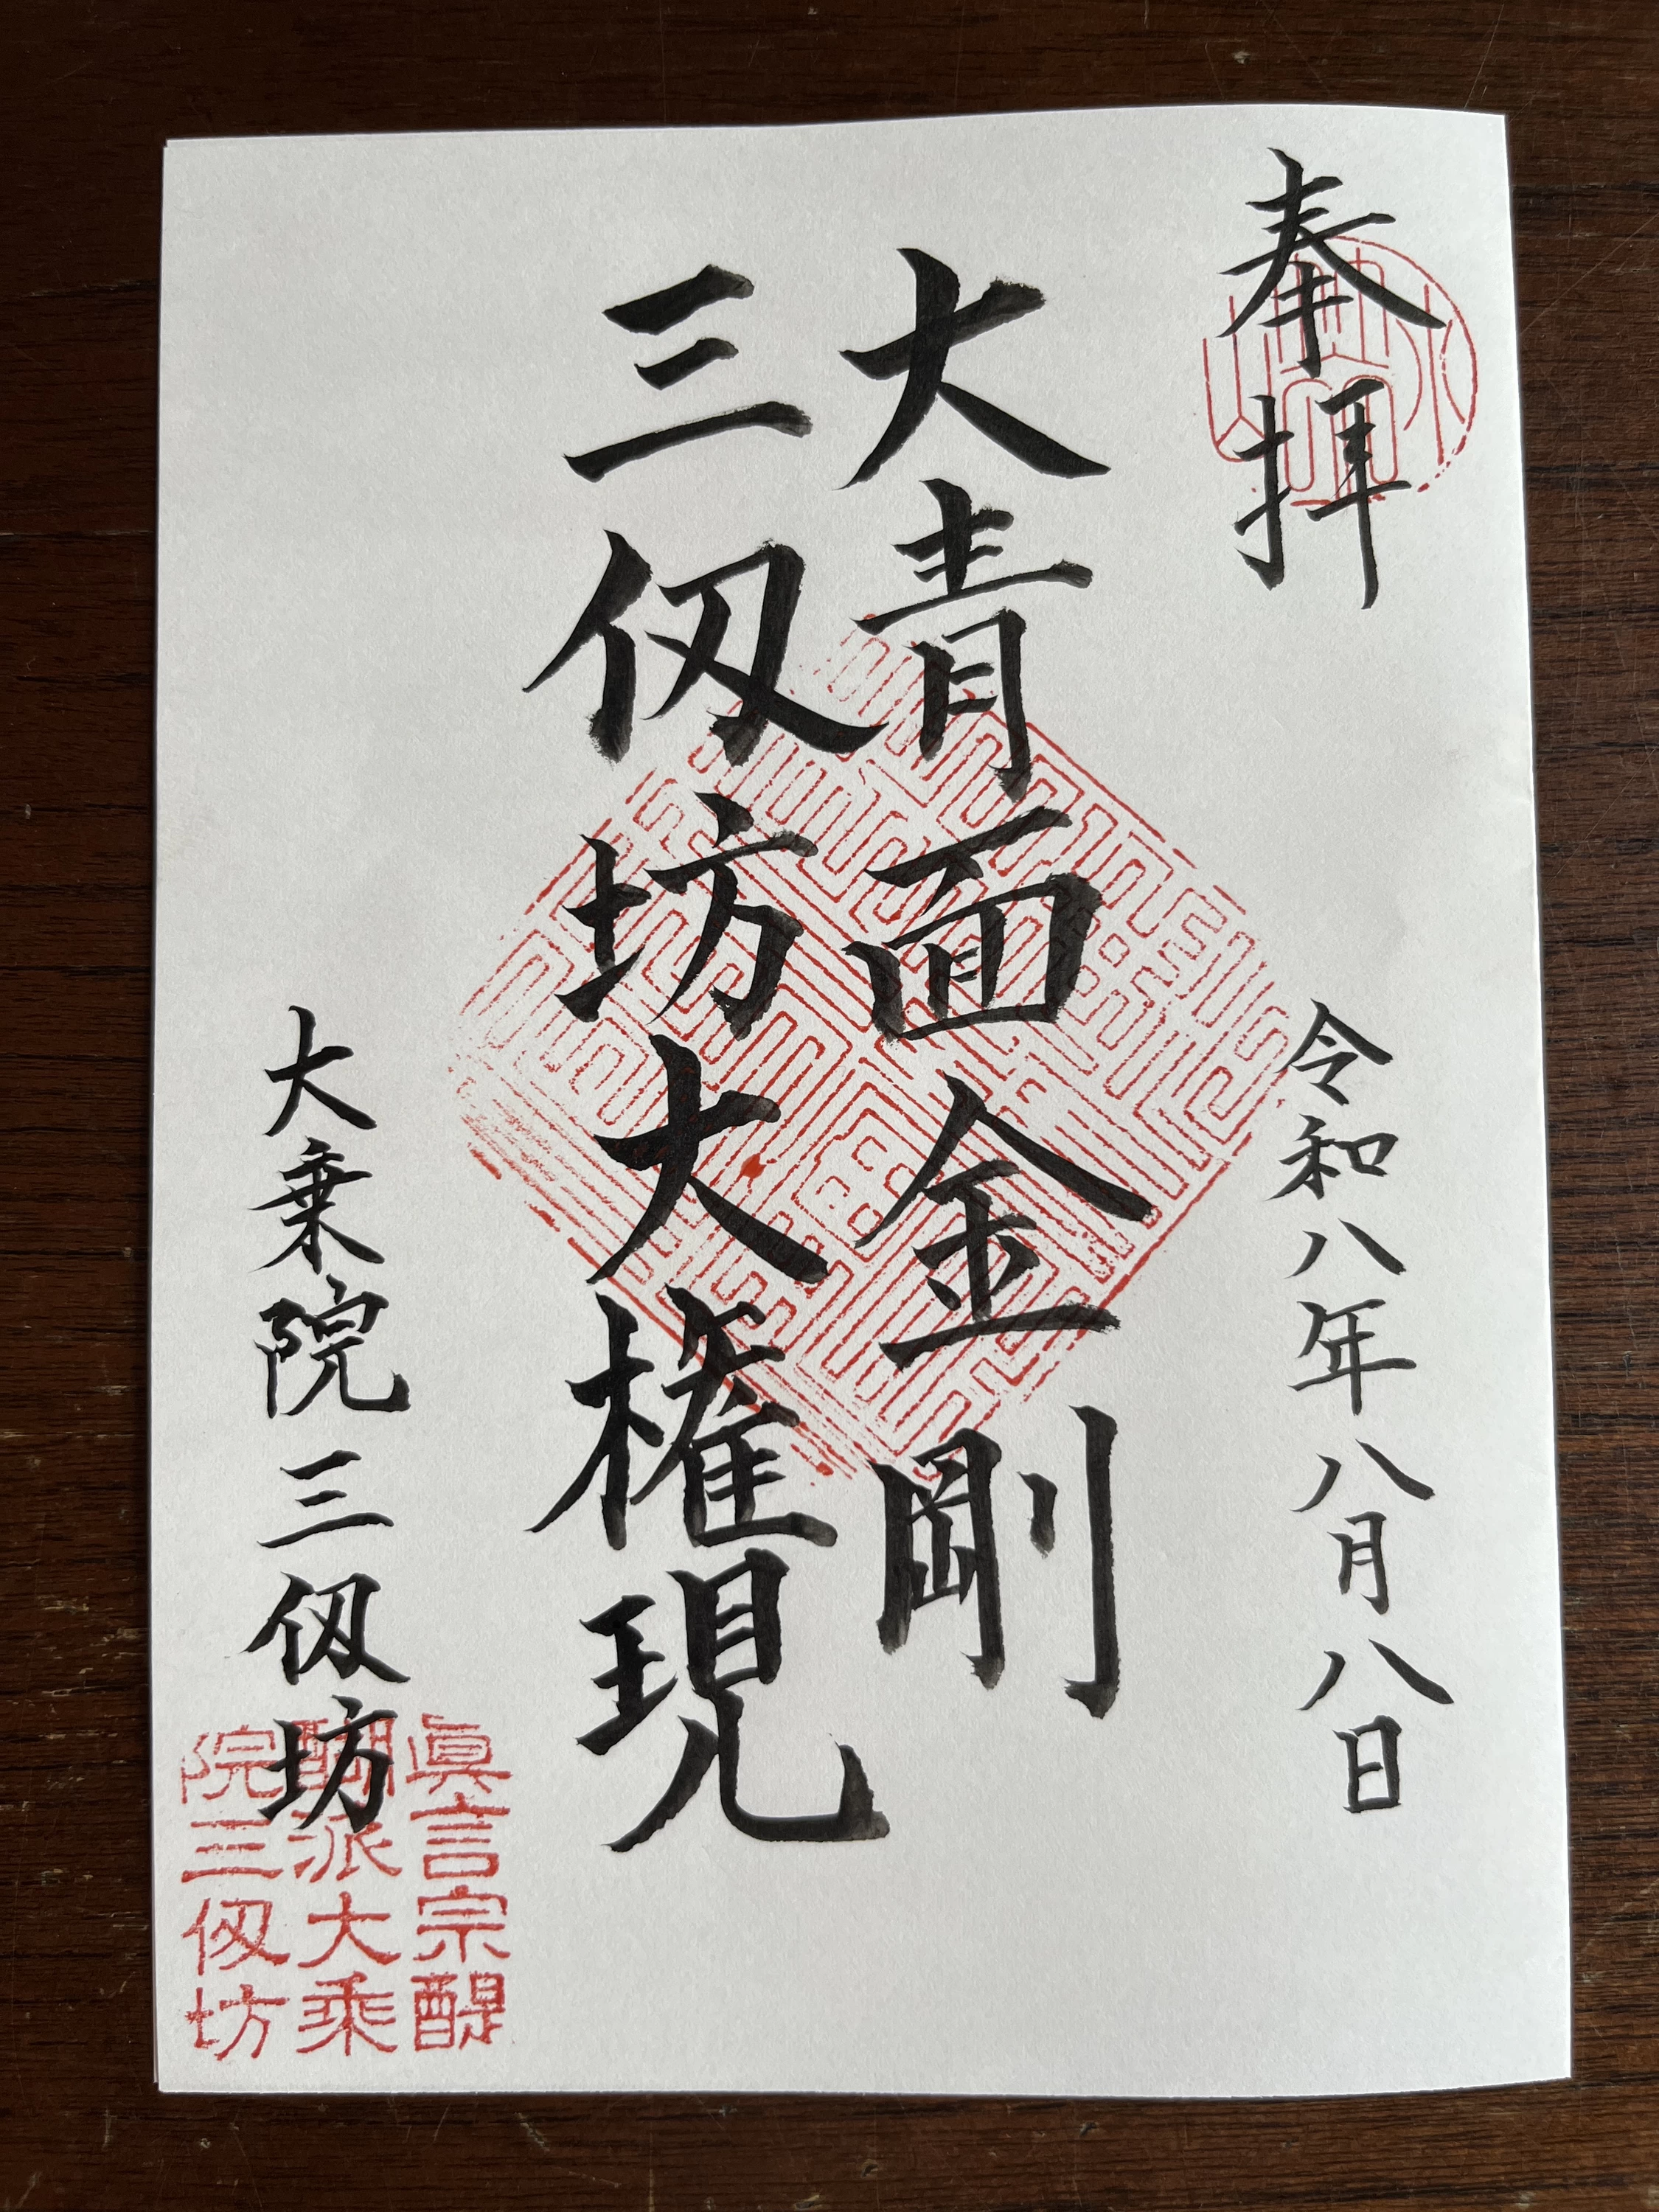 奉拝
令和八年八月八日
大青面金剛
三仭坊大権現
大乗院三仭坊
眞言宗醍
醐派大乘
院三仭坊